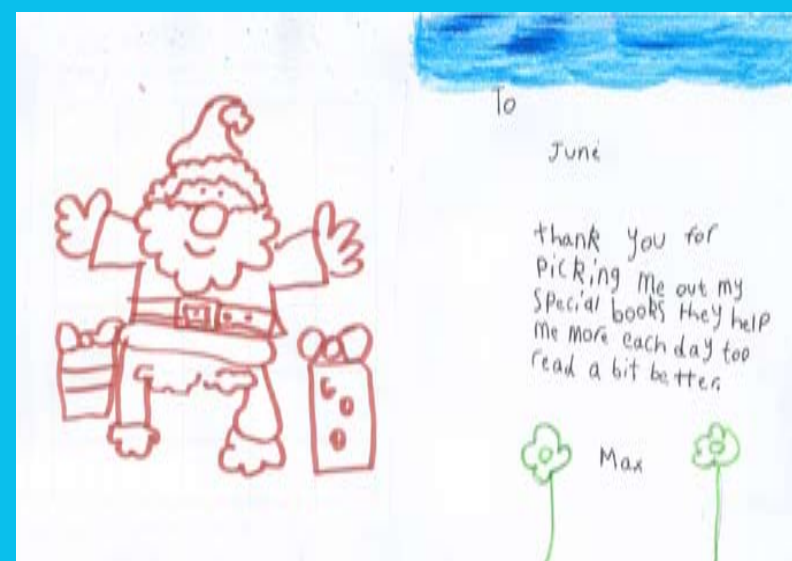 To
June
thank you for
picking me out my
special books they help
me more each day too
read a bit better.
Max